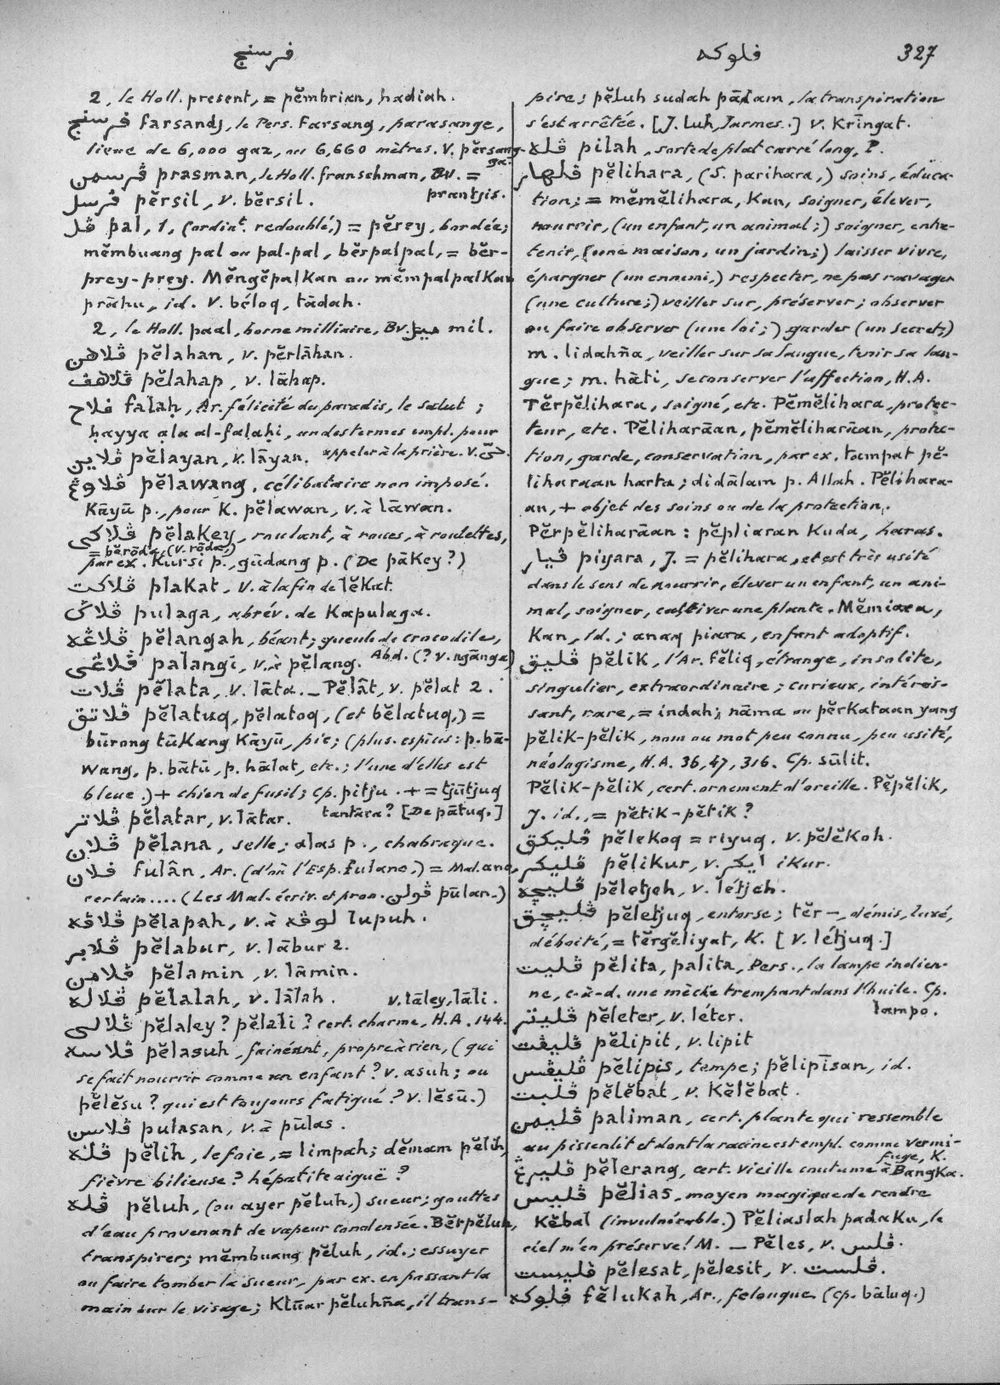 فرسنج
فلوكه 327
2, le Holl. present, = pĕmbrian, hadiah.
فرسنج farsandj, le Pers. Farsang, parasange,
lieue de 6,000 gaz, ou 6,660 mètres. V. pĕrsang-
ga.
ڤرسمن prasman, le Holl. franschman, Bv. =
prantjis.
ڤرسل pĕrsil, v. bĕrsil.
ڤل pal, 1, (ordint. redoublé,) = pĕrey, bordée;
mĕmbuang pal ou pal-pal, bĕrpalpal, = bĕr-
prey-prey. Mĕngĕpalkan ou mĕmpalpalkan
prāhu, id. V. béloq, tādah.
2, le Holl. paal, borne milliaire, Bv. ميل mil.
ڤلاهن pĕlahan, v. pĕrlāhan.
ڤلاهڤ pĕlahap, v. lāhap.
فلاح falaḥ, Ar. félicité du paradis, le salut;
ḥayya ala al-falaḥi, un des termes empl. pour
appeler à la prière. V. حيّ.
ڤلاين pĕlayan, v. lāyan.
ڤلاوڠ pĕlawang, célibataire non imposé.
Kāyū p., pour K. pĕlawan, v. à lāwan.
ڤلاكي pĕlakey, roulant, à roues, à roulettes,
= bĕrōda, (v. rōda,)
par ex. Kursi p., gūdang p. (De pākey?)
ڤلاكت plakat, v. à la fin de lĕkat.
ڤلاݢ pulaga, abrév. de Kapulaga.
ڤلاڠه pĕlangah, béant; gueule de crocodile,
Abd. (? v. ngānga)
ڤلاڠي palangi, v. à pĕlang.
ڤلات pĕlata, v. lāta. — Pĕlât, v. pĕlat 2.
ڤلاتق pĕlatuq, pĕlatoq, (et bĕlatuq,) =
būrong tūkang Kāyū, pic; (plus. espèces: p. bā-
wang, p. bātū, p. hālat, etc.; l'une d'elles est
bleue.) + chien de fusil; Cp. pitju. + = tjūtjuq
tantāra? [De pātuq.]
ڤلاتر pĕlatar, v. lātar.
ڤلان pĕlana, selle; alas p., chabraque.
فلان fulân, Ar. (d'où l'Esp. fulano,) = Mal. anu,
certain .... (Les Mal. écriv. et pron. ڤولن pūlan.)
ڤلاڤه pĕlapah, v. à لوڤه lupuh.
ڤلابر pĕlabur, v. lābur 2.
ڤلامن pĕlamin, v. lāmin.
ڤلاله pĕlalah, v. lālah. v. lāley, lāli.
ڤلالي pĕlaley? pĕlali? cert. charme, H.A. 144.
ڤلاسه pĕlasuh, fainéant, propre à rien, (qui
se fait nourrir comme un enfant? v. asuh; ou
pĕlĕsu? qui est toujours fatigué? v. lĕsū.)
ڤلاسن pulasan, v. à pūlas.
ڤلهٓ pĕlih, le foie, = limpah; dĕmam pĕlih,
fièvre bilieuse? hépatite aiguë?
ڤله pĕluh, (ou ayer pĕluh,) sueur; gouttes
d'eau provenant de vapeur condensée. Bĕrpĕluh,
transpirer; mĕmbuang pĕluh, id.; essuyer
ou faire tomber la sueur, par ex. en passant la
main sur le visage; Kluar pĕluhña, il trans-
pire; pĕluh sudah pādam, la transpiration
s'est arrêtée. [J. Luh, larmes.] V. Krīngat.
ڤله pilah, sorte de plat carré long, P.
ڤلهار pĕlihara, (S. parihara,) soins, éduca-
tion; = mĕmĕlihara, Kan, soigner, élever,
nourrir, (un enfant, un animal;) soigner, entre-
tenir, (une maison, un jardin;) laisser vivre,
épargner (un ennemi,) respecter, ne pas ravager
(une culture;) veiller sur, préserver; observer
ou faire observer (une loi;) garder (un secret;)
m. lidahña, veiller sur sa langue, tenir sa lan-
gue; m. hāti, se conserver l'affection, H.A.
Tĕrpĕlihara, soigné, etc. Pĕmĕlihara, protec-
teur, etc. Pĕliharāan, pĕmĕliharāan, protec-
tion, garde, conservation, par ex. tampat pĕ-
liharaan harta; didālam p. Allah. Pĕlihara-
an, + objet des soins ou de la protection.
Pĕrpĕliharāan: pĕpliaran Kuda, haras.
ڤيار piyara, J. = pĕlihara, et est très usité
dans le sens de nourrir, élever un enfant, un ani-
mal, soigner, cultiver une plante. Mĕmiara,
Kan, id.; anaq piara, enfant adoptif.
ڤليق pĕlik, l'Ar. fĕliq, étrange, insolite,
singulier, extraordinaire; curieux, intéres-
sant, rare, = indah; nāma ou pĕrkataan yang
pĕlik-pĕlik, nom ou mot peu connu, peu usité,
néologisme, H.A. 36, 47, 316. Cp. sūlit.
Pĕlik-pĕlik, cert. ornement d'oreille. Pĕpĕlik,
J. id., = pĕtik-pĕtik?
ڤليكق pĕlekoq = riyuq. v. pĕlĕkoh.
ڤليكر pĕlikur, v. ايكر ikur.
ڤليچه pĕletjeh, v. létjeh.
ڤليچق pĕletjuq, entorse; tĕr—, démis, luxé,
déboîté, = tĕrgĕliyat, K. [V. létjuq.]
ڤليت pĕlita, palita, Pers., la lampe indien-
ne, c.-à-d. une mèche trempant dans l'huile. Cp.
lampo.
ڤليتر pĕleter, v. léter.
ڤليڤت pĕlipit, v. lipit
ڤليڤس pĕlipis, tempe; pĕlipīsan, id.
ڤلبت pĕlĕbat, v. Kĕlĕbat.
ڤليمن paliman, cert. plante qui ressemble
au pissenlit et dont la racine est empl. comme vermi-
fuge, K.
ڤليرڠ pĕlerang, cert. vieille coutume à Bangka.
ڤلييس pĕlias, moyen magique de rendre
Kĕbal (invulnérable.) Pĕliaslah padaku, le
ciel m'en préserve! M. — Pĕles, v. ڤلس.
ڤليست pĕlesat, pĕlesit, v. ڤلست.
فلوكه fĕlukah, Ar., felouque (cp. bāluq.)